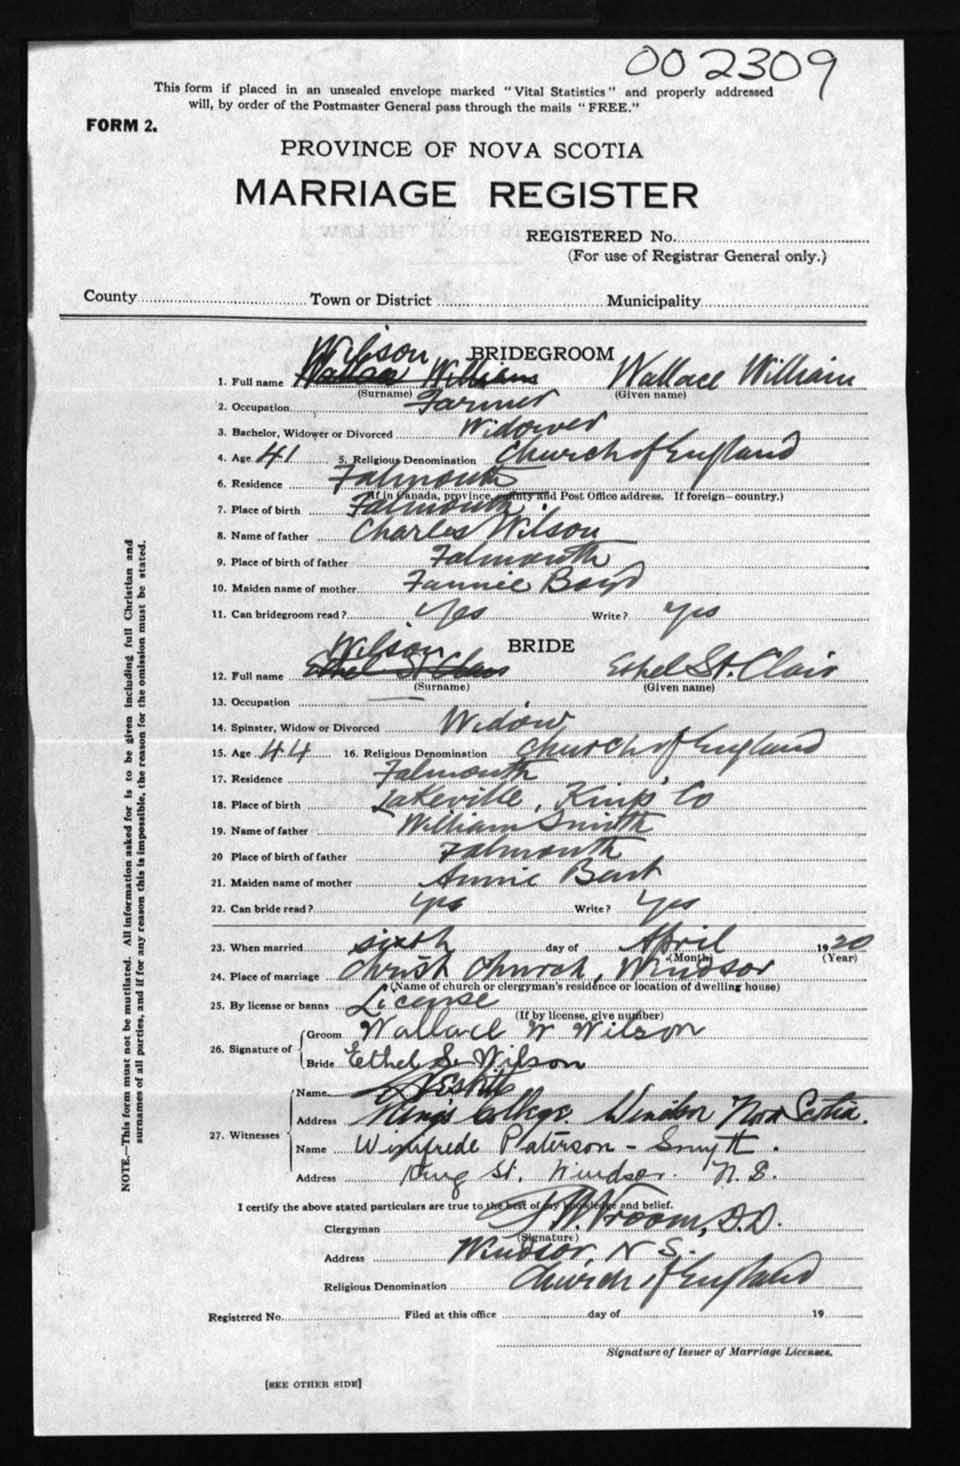 002309
This form if placed in an unsealed envelope marked "Vital Statistics" and properly addressed
will, by order of the Postmaster General pass through the mails "FREE."
FORM 2.
PROVINCE OF NOVA SCOTIA
MARRIAGE REGISTER
REGISTERED No.
(For use of Registrar General only.)
County Town or District Municipality
BRIDEGROOM
Wilson
1. Full name Wallace Williams Wallace William
(Surname) (Given name)
2. Occupation Farmer
3. Bachelor, Widower or Divorced Widower
4. Age 41 5. Religious Denomination Church of England
6. Residence Falmouth
(If in Canada, province, county and Post Office address. If foreign—country.)
7. Place of birth Falmouth
8. Name of father Charles Wilson
9. Place of birth of father Falmouth
10. Maiden name of mother Fannie Boyd
11. Can bridegroom read? Yes Write? Yes
BRIDE
Wilson
12. Full name Ethel St Clair Ethel St. Clair
(Surname) (Given name)
13. Occupation
14. Spinster, Widow or Divorced Widow
15. Age 44 16. Religious Denomination Church of England
17. Residence Falmouth
18. Place of birth Lakeville, Kings Co
19. Name of father William Smith
20 Place of birth of father Falmouth
21. Maiden name of mother Annie
22. Can bride read? Yes Write? Yes
23. When married sixth day of April 1920
(Month) (Year)
24. Place of marriage Christ Church, Windsor
(Name of church or clergyman's residence or location of dwelling house)
25. By license or banns License
(If by license, give number)
26. Signature of Groom Wallace W Wilson
Bride Ethel S. Wilson
27. Witnesses Name
Address King's College Windsor Nova Scotia.
Name Winifrede Paterson - Smyth.
Address King St. Windsor. N.S.
I certify the above stated particulars are true to the best of my knowledge and belief.
Clergyman Vroom, D.D.
(Signature)
Address Windsor, N.S.
Religious Denomination Church of England
Registered No. Filed at this office day of 19
Signature of Issuer of Marriage Licenses.
[SEE OTHER SIDE]
NOTE.—This form must not be mutilated. All information asked for is to be given including full Christian and
surnames of all parties, and if for any reason this is impossible, the reason for the omission must be stated.